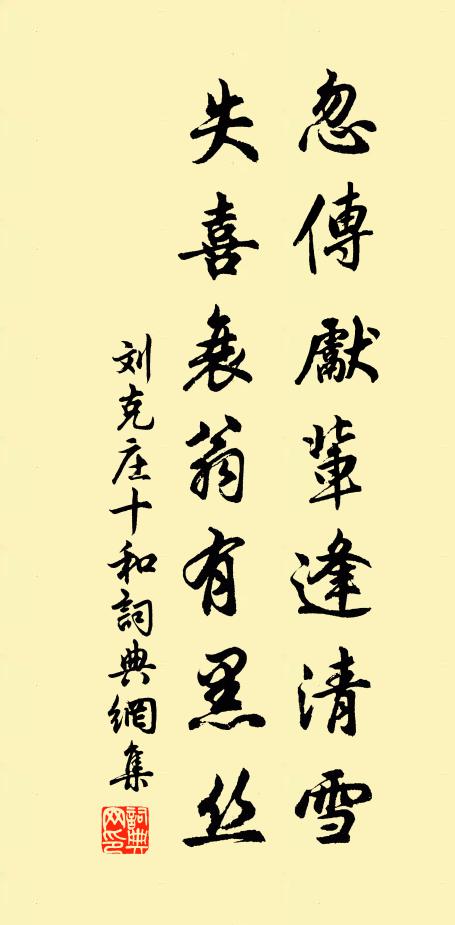 忽傳獻輩逢清雪
失喜衰翁有黑丝
刘克庄十和詞典網集
詞典网印